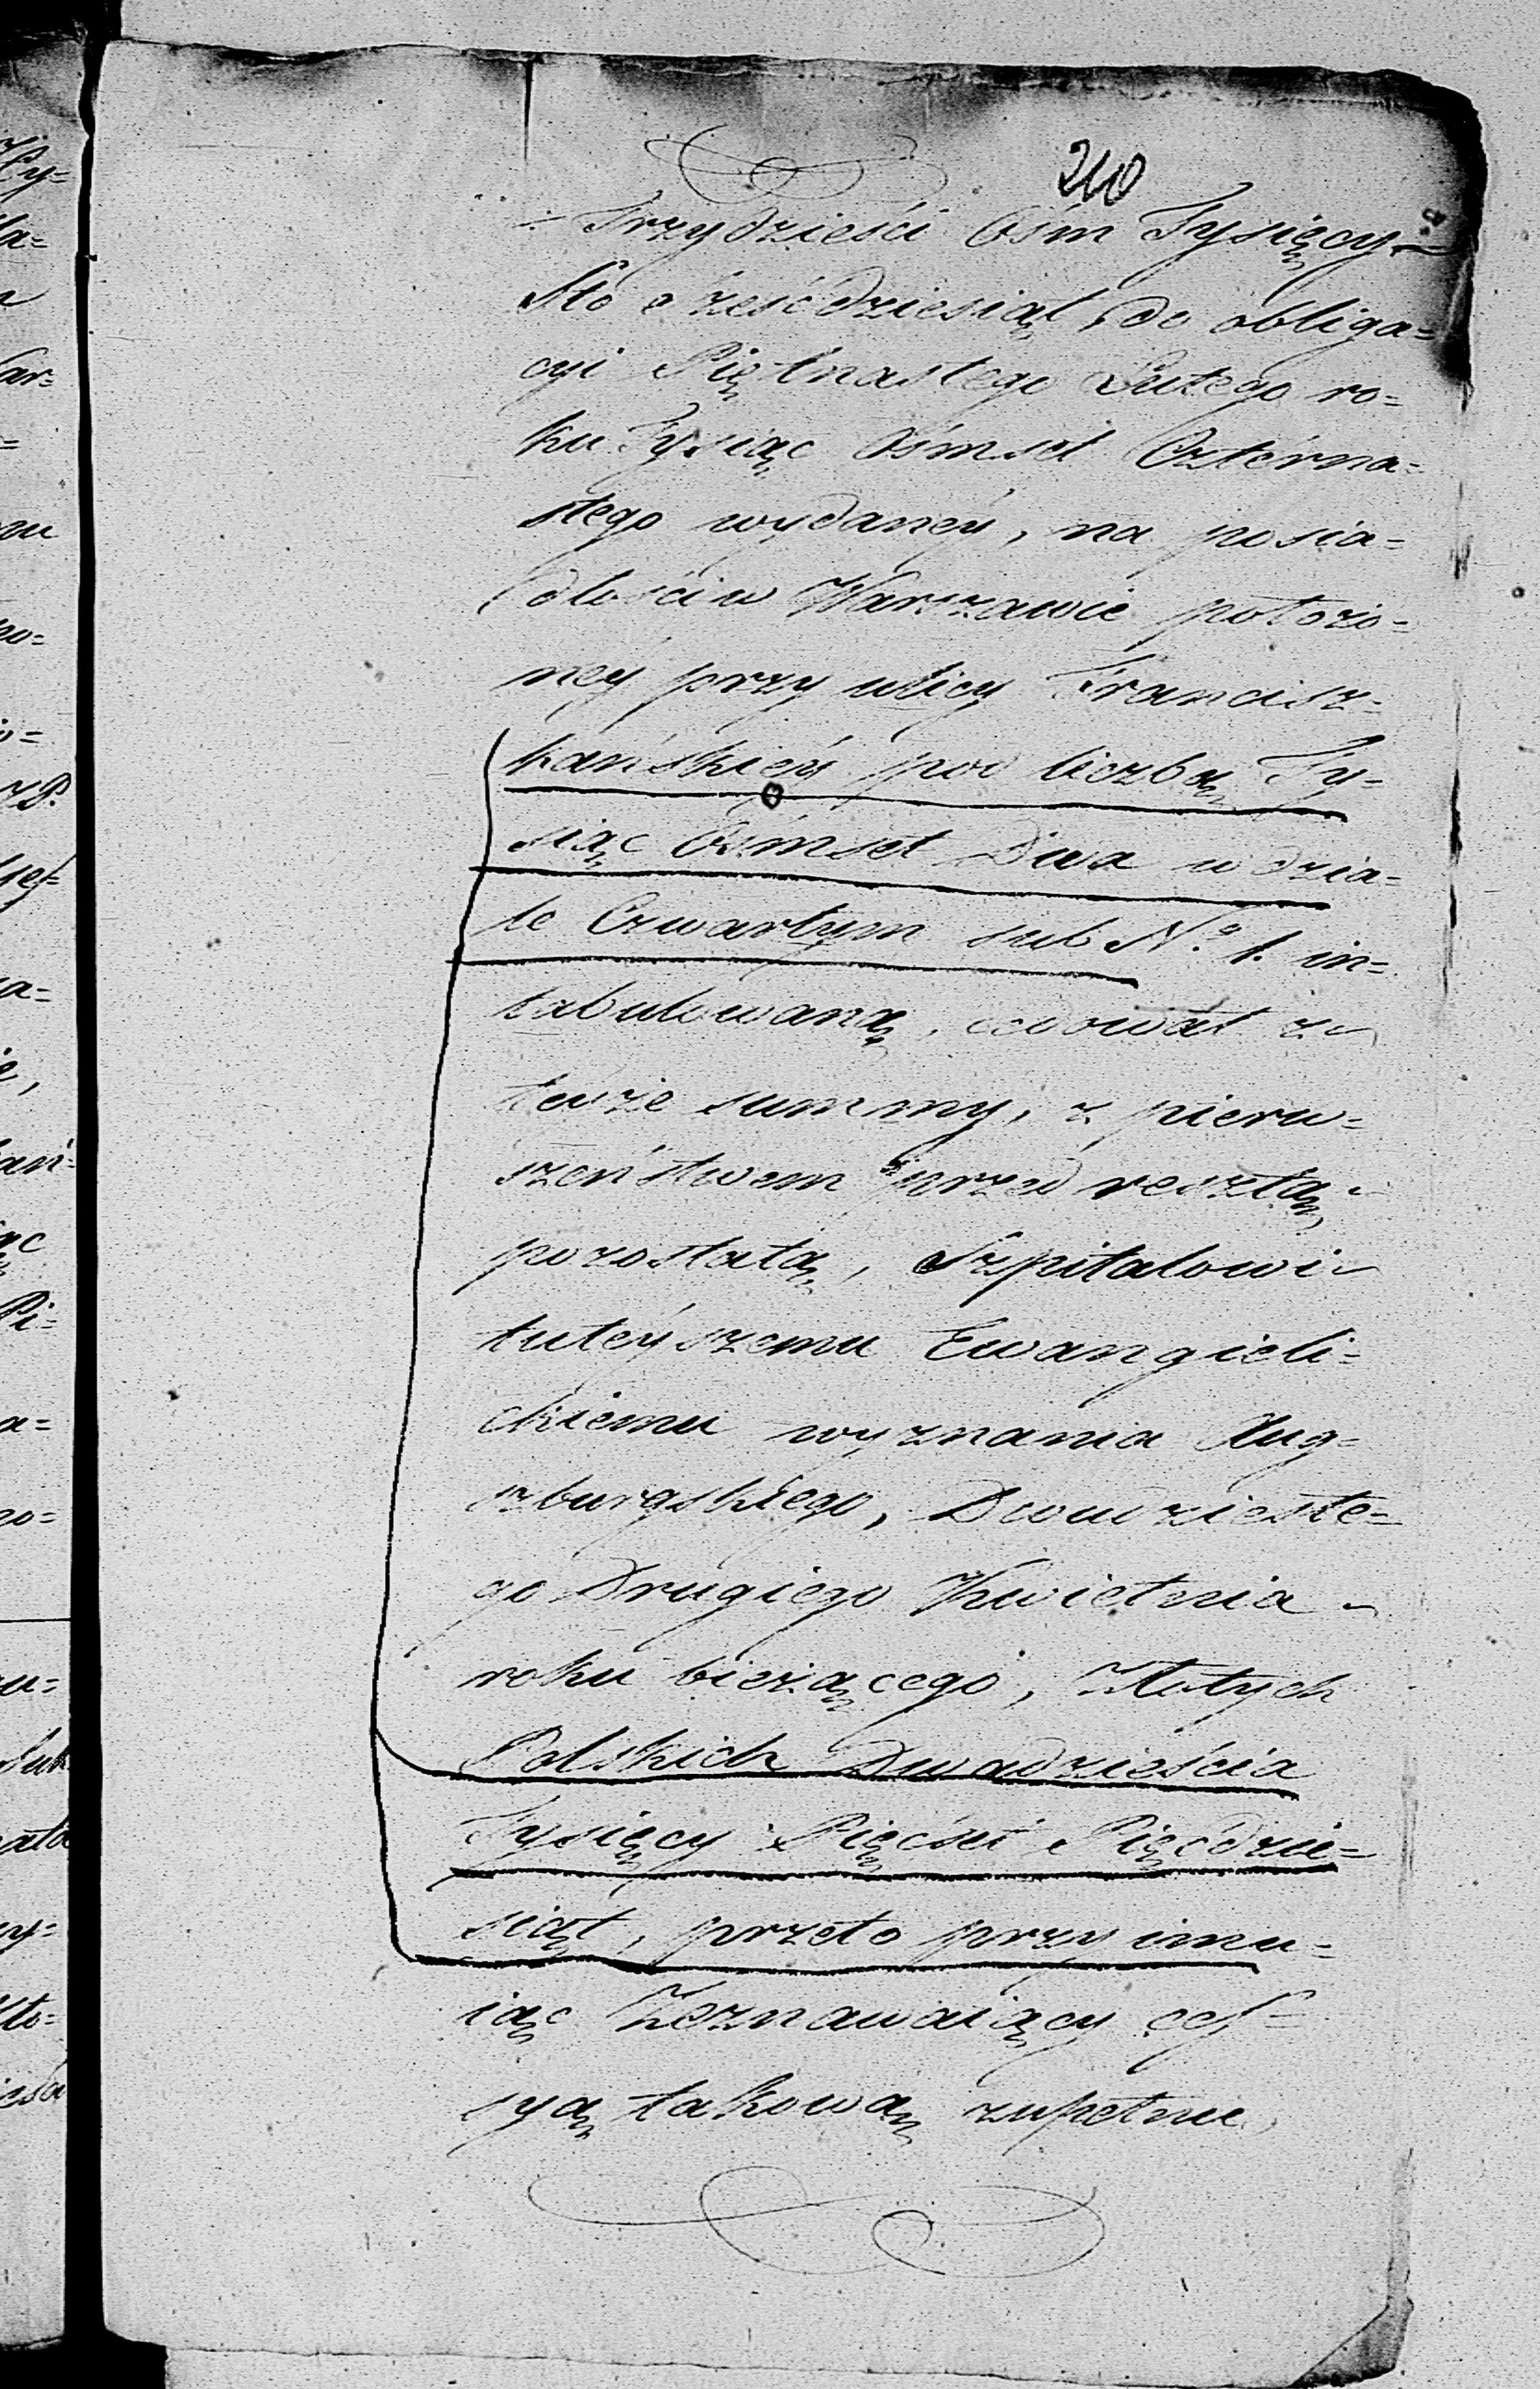 210
Trzydzieści Ośm Tysięcy
Sto sześćdziesiąt, do obliga=
cyi Piętnastego Lutego ro=
ku Tysiąc Ośmset Czterna=
stego wydaney, na posia=
dłości w Warszawie położo=
ney przy ulicy Francisz=
kańskiey pod liczbą Ty=
siąc Ośmset Dwa w dzia=
le Czwartym sub No. 1. in=
tabulowaną, cedował z
teyże summy, z pierw=
szeństwem przed resztą
pozostałą, Szpitalowi
tuteyszemu Ewangieli=
ckiemu wyznania Aug=
szburgskiego, Dwudzieste=
go Drugiego Kwietnia
roku bieżącego, Złotych
Polskich Dwadzieścia
Tysięcy Pięćset Pięćdzie=
siąt, przeto przyimu=
iąc Zeznawaiący cess=
syą takową zupełnie,